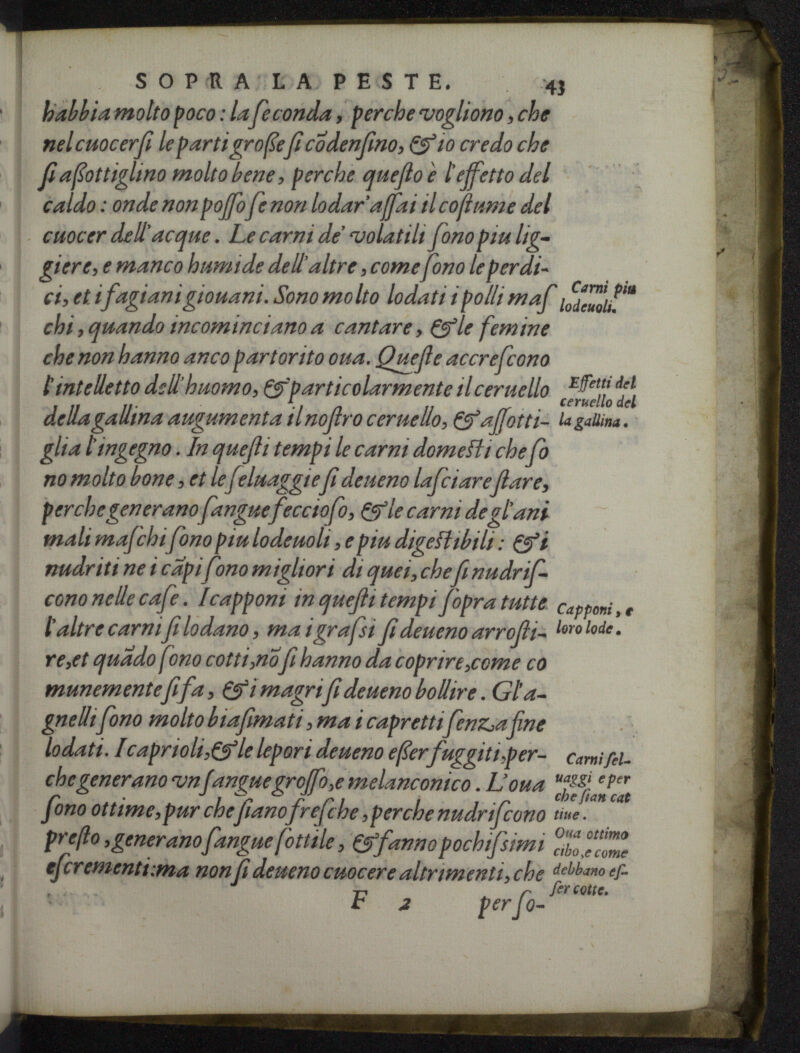 SOPRA LA PESTE. 43
habbia molto poco: la ſeconda, perche vogliono, che
nel cuocerſi le parti groſſe ſi cōdenſino, & io credo che
ſi aſſottiglino molto bene, perche queſto è l'effetto del
caldo: onde non poſſo ſe non lodar' aſſai il coſtume del
cuocer dell' acque. Le carni de' volatili ſono piu lig-
giere, e manco humide dell' altre, come ſono le perdi-
ci, et i fagiani giouani. Sono molto lodati i polli maſ
Carni piu
lodeuoli.
chi, quando incominciano a cantare, & le femine
che non hanno anco partorito oua. Queſte accreſcono
l'intelletto dell' huomo, & particolarmente il ceruello
della gallina augumenta il noſtro ceruello, & aſſotti-
Effetti del
ceruello del
la gallina.
glia l'ingegno. In queſti tempi le carni domeſti che ſo
no molto bone, et le ſeluaggie ſi deueno laſciare ſtare,
perche generano ſangue fecciofo, & le carni de gl'ani
mali maſchi ſono piu lodeuoli, e piu digeſtibili: & i
nudriti ne i cāpi ſono migliori di quei, che ſi nudriſ-
cono nelle caſe. I capponi in queſti tempi ſopra tutte
l'altre carni ſi lodano, ma i graſsi ſi deueno arroſti-
Capponi, e
loro lode.
re, et quādo ſono cotti, nō ſi hanno da coprire, come co
munemente ſi fa, & i magri ſi deueno bollire. Gl'a-
gnelli ſono molto biaſimati, ma i capretti ſenza fine
lodati. I caprioli, & le lepori deueno eſſer fuggiti, per-
che generano vn ſangue groſſo, e melanconico. L'oua
ſono ottime, pur che ſiano freſche, perche nudriſcono
Carni ſel-
uaggi e per
che ſian cat
tiue.
preſto, generano ſangue ſottile, & fanno pochiſsimi
eſcrementi: ma non ſi deueno cuocere altrimenti, che
Oua ottimo
cibo, e come
debbano eſ-
ſer cotte.
F 2 per ſo-